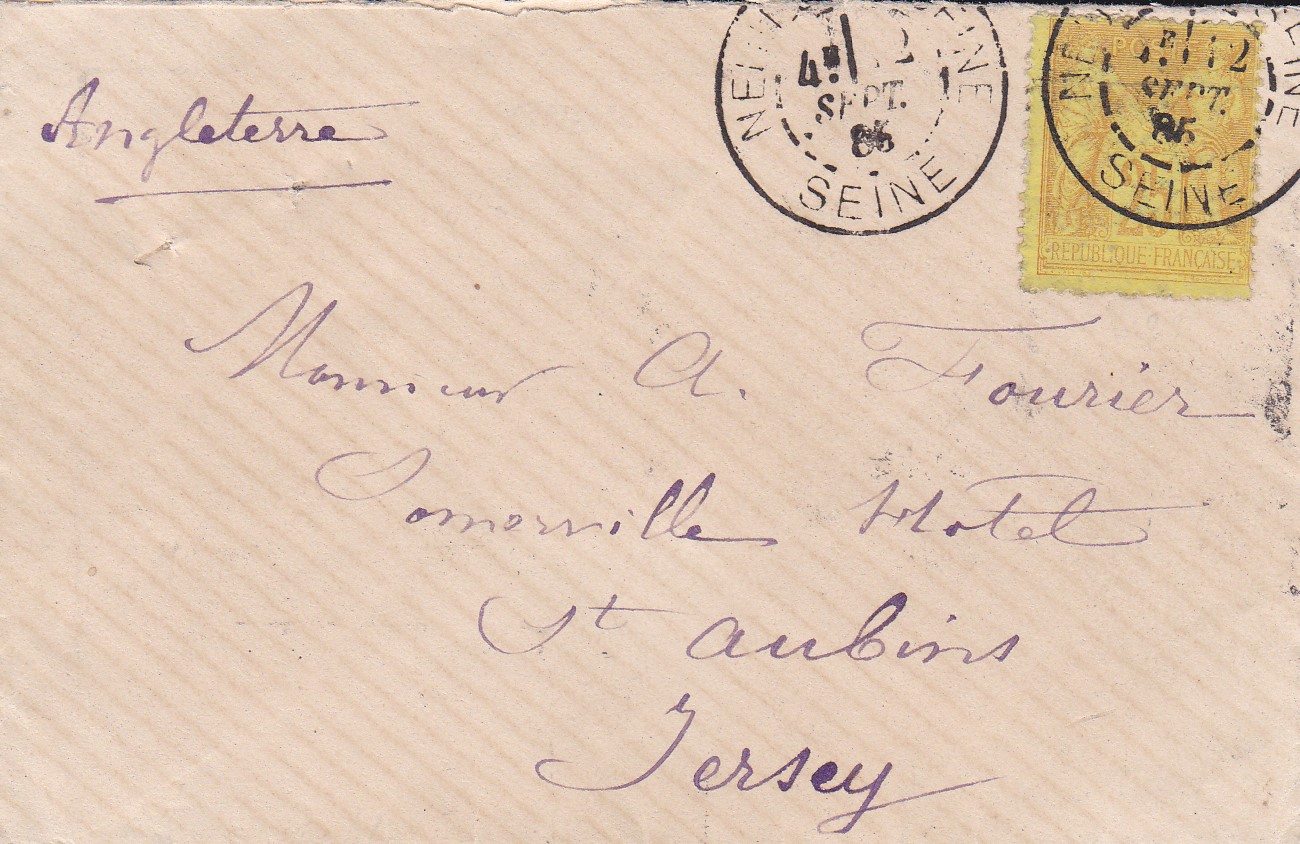 Angleterre
4E 12
SEPT.
86
SEINE
4E 12
SEPT.
86
SEINE
POSTES
25
REPUBLIQUE FRANCAISE
Monsieur A. Fourier
Somerville Hotel
St. aubins
Jersey